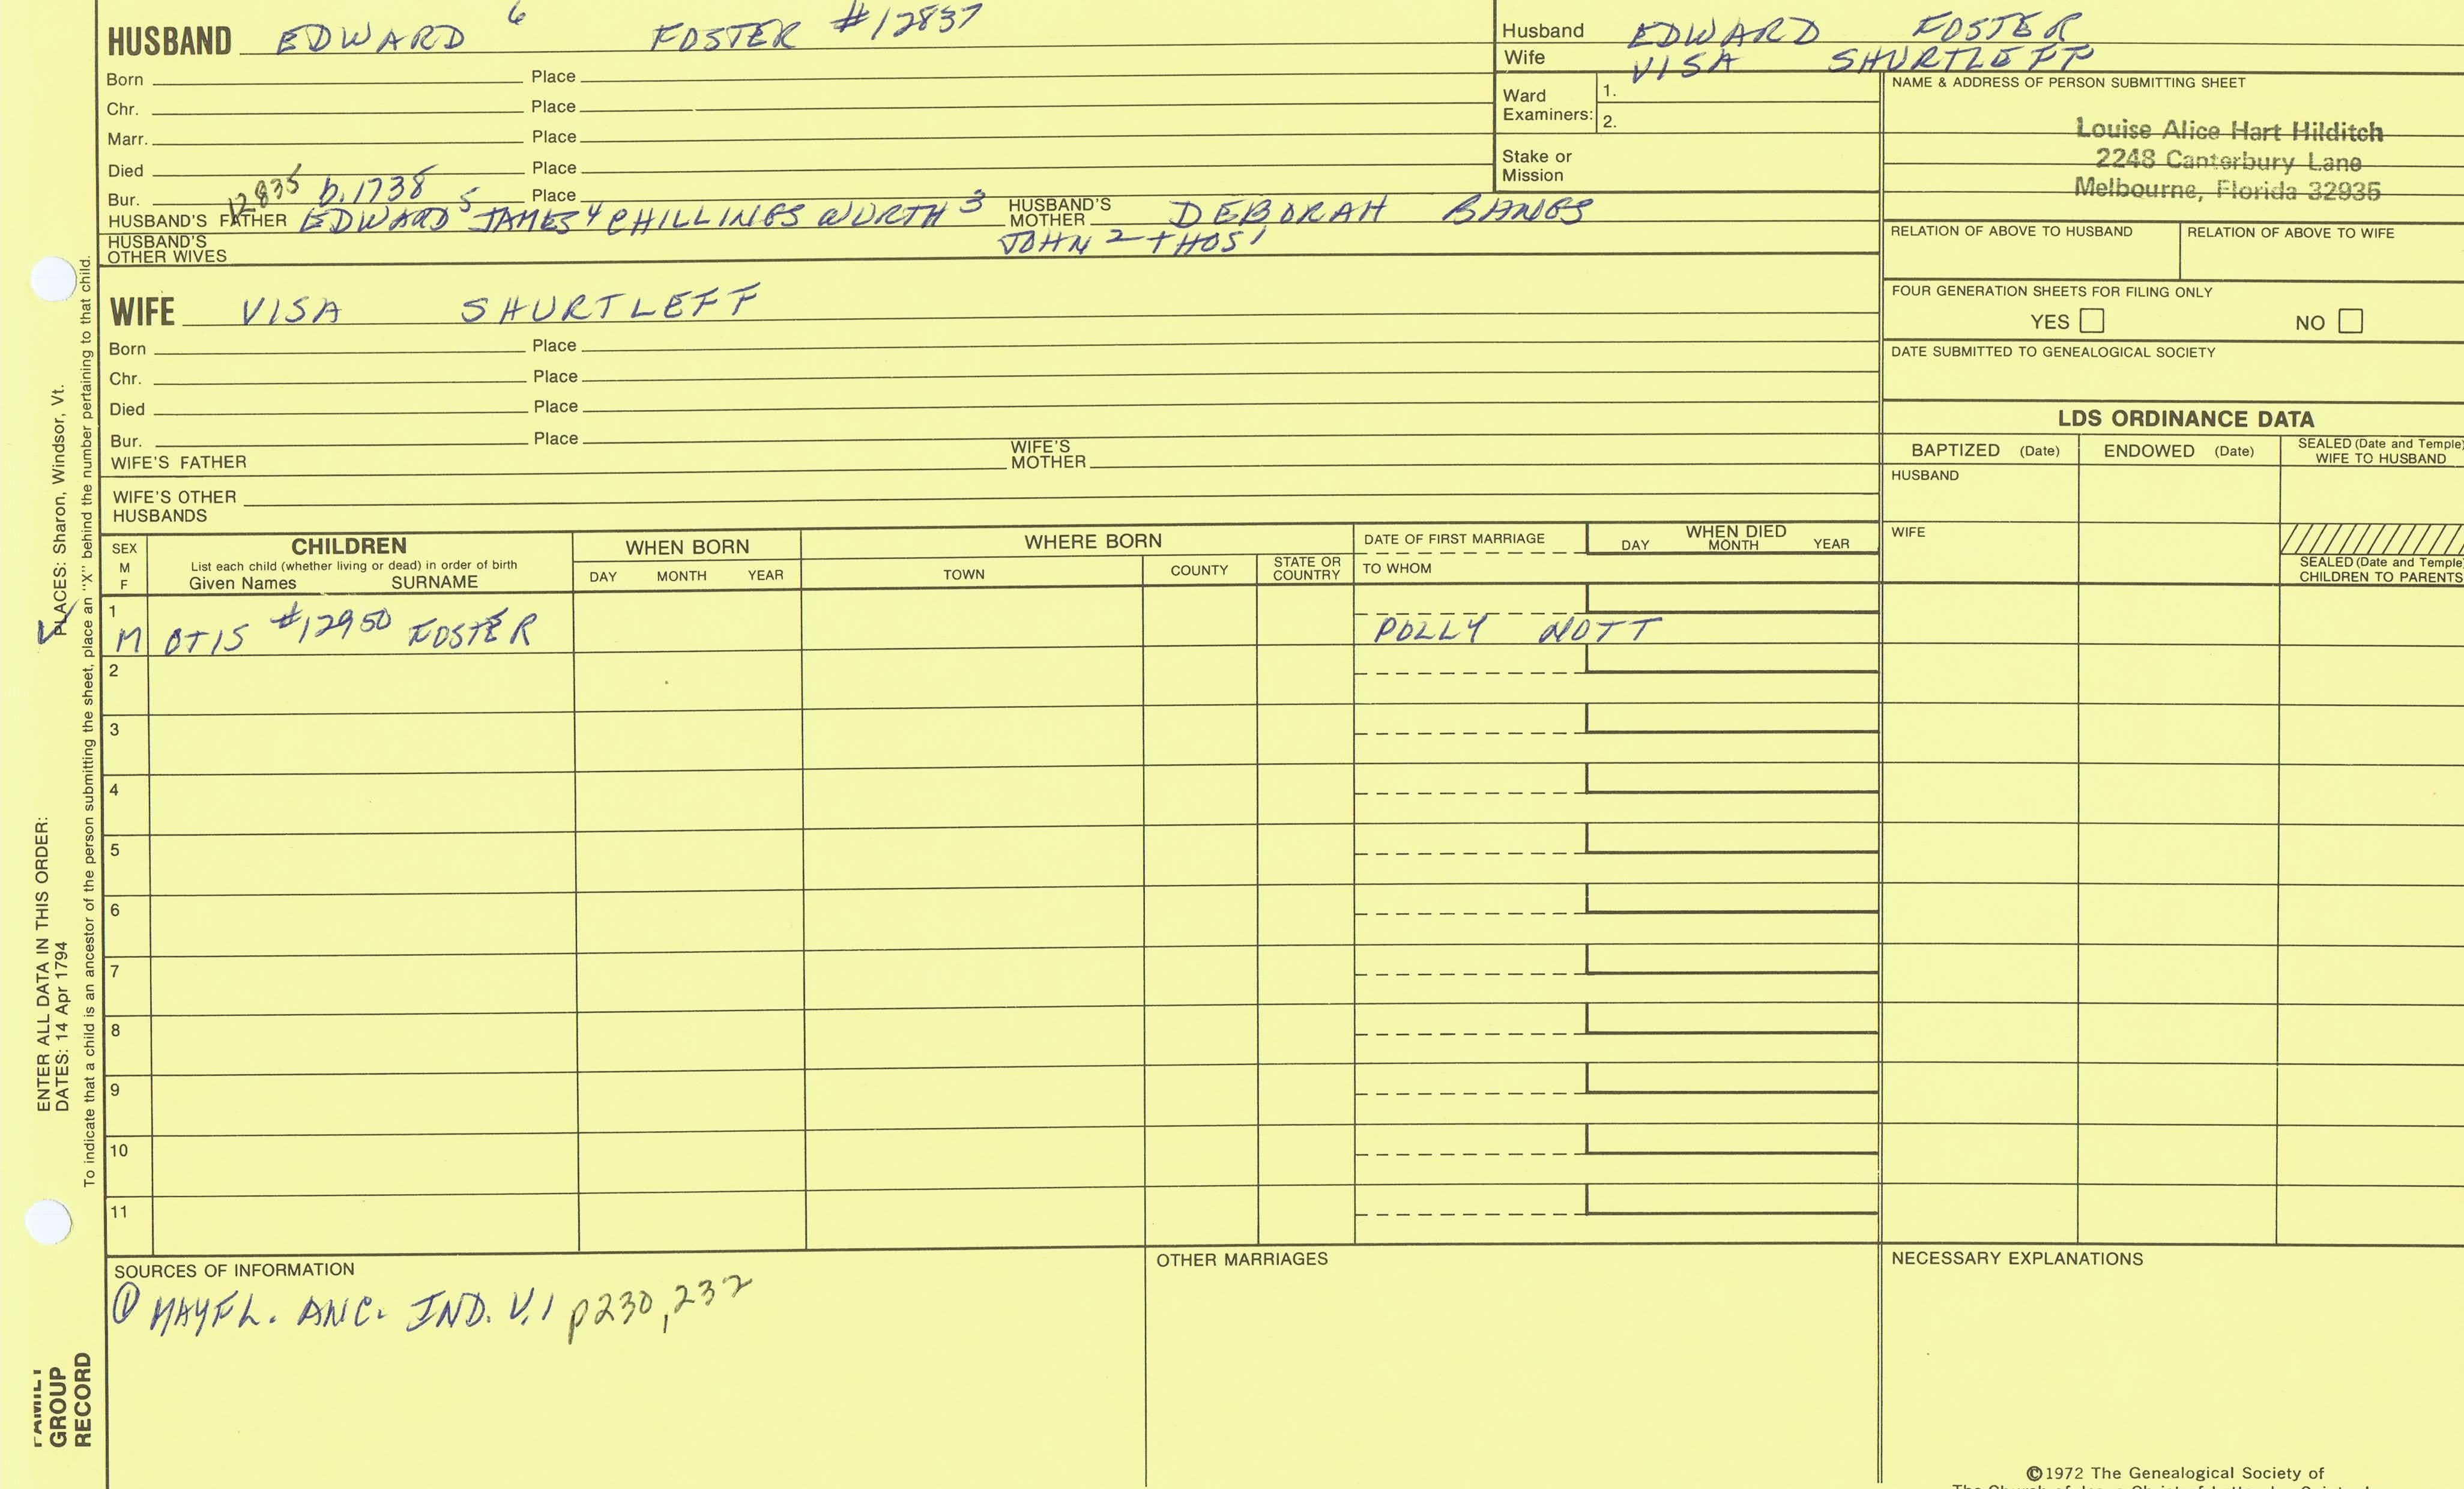 HUSBAND EDWARD 6 FOSTER #12837
Born Place
Chr. Place
Marr. Place
Died Place
Bur. 12835 b.1738 Place
HUSBAND'S FATHER EDWARD 5 JAMES 4 CHILLINGSWORTH 3 HUSBAND'S MOTHER DEBORAH BANGS
HUSBAND'S OTHER WIVES JOHN 2 THOS 1
Husband EDWARD FOSTER
Wife VISA SHURTLEFF
Ward Examiners: 1.
2.
Stake or Mission
NAME & ADDRESS OF PERSON SUBMITTING SHEET
Louise Alice Hart Hilditch
2248 Canterbury Lane
Melbourne, Florida 32935
RELATION OF ABOVE TO HUSBAND RELATION OF ABOVE TO WIFE
FOUR GENERATION SHEETS FOR FILING ONLY
YES NO
DATE SUBMITTED TO GENEALOGICAL SOCIETY
WIFE VISA SHURTLEFF
Born Place
Chr. Place
Died Place
Bur. Place
WIFE'S FATHER WIFE'S MOTHER
WIFE'S OTHER HUSBANDS
LDS ORDINANCE DATA
BAPTIZED (Date) ENDOWED (Date) SEALED (Date and Temple) WIFE TO HUSBAND
HUSBAND
WIFE
SEALED (Date and Temple) CHILDREN TO PARENTS
SEX M F
CHILDREN
List each child (whether living or dead) in order of birth
Given Names SURNAME
WHEN BORN
DAY MONTH YEAR
WHERE BORN
TOWN COUNTY STATE OR COUNTRY
DATE OF FIRST MARRIAGE
TO WHOM
WHEN DIED
DAY MONTH YEAR
1
M OTIS #12950 FOSTER POLLY NOTT
2
3
4
5
6
7
8
9
10
11
SOURCES OF INFORMATION
① MAYFL. ANC. IND. V.1 p230,232
OTHER MARRIAGES
NECESSARY EXPLANATIONS
©1972 The Genealogical Society of
ENTER ALL DATA IN THIS ORDER:
DATES: 14 Apr 1794 PLACES: Sharon, Windsor, Vt.
To indicate that a child is an ancestor of the person submitting the sheet, place an "X" behind the number pertaining to that child.
FAMILY
GROUP
RECORD